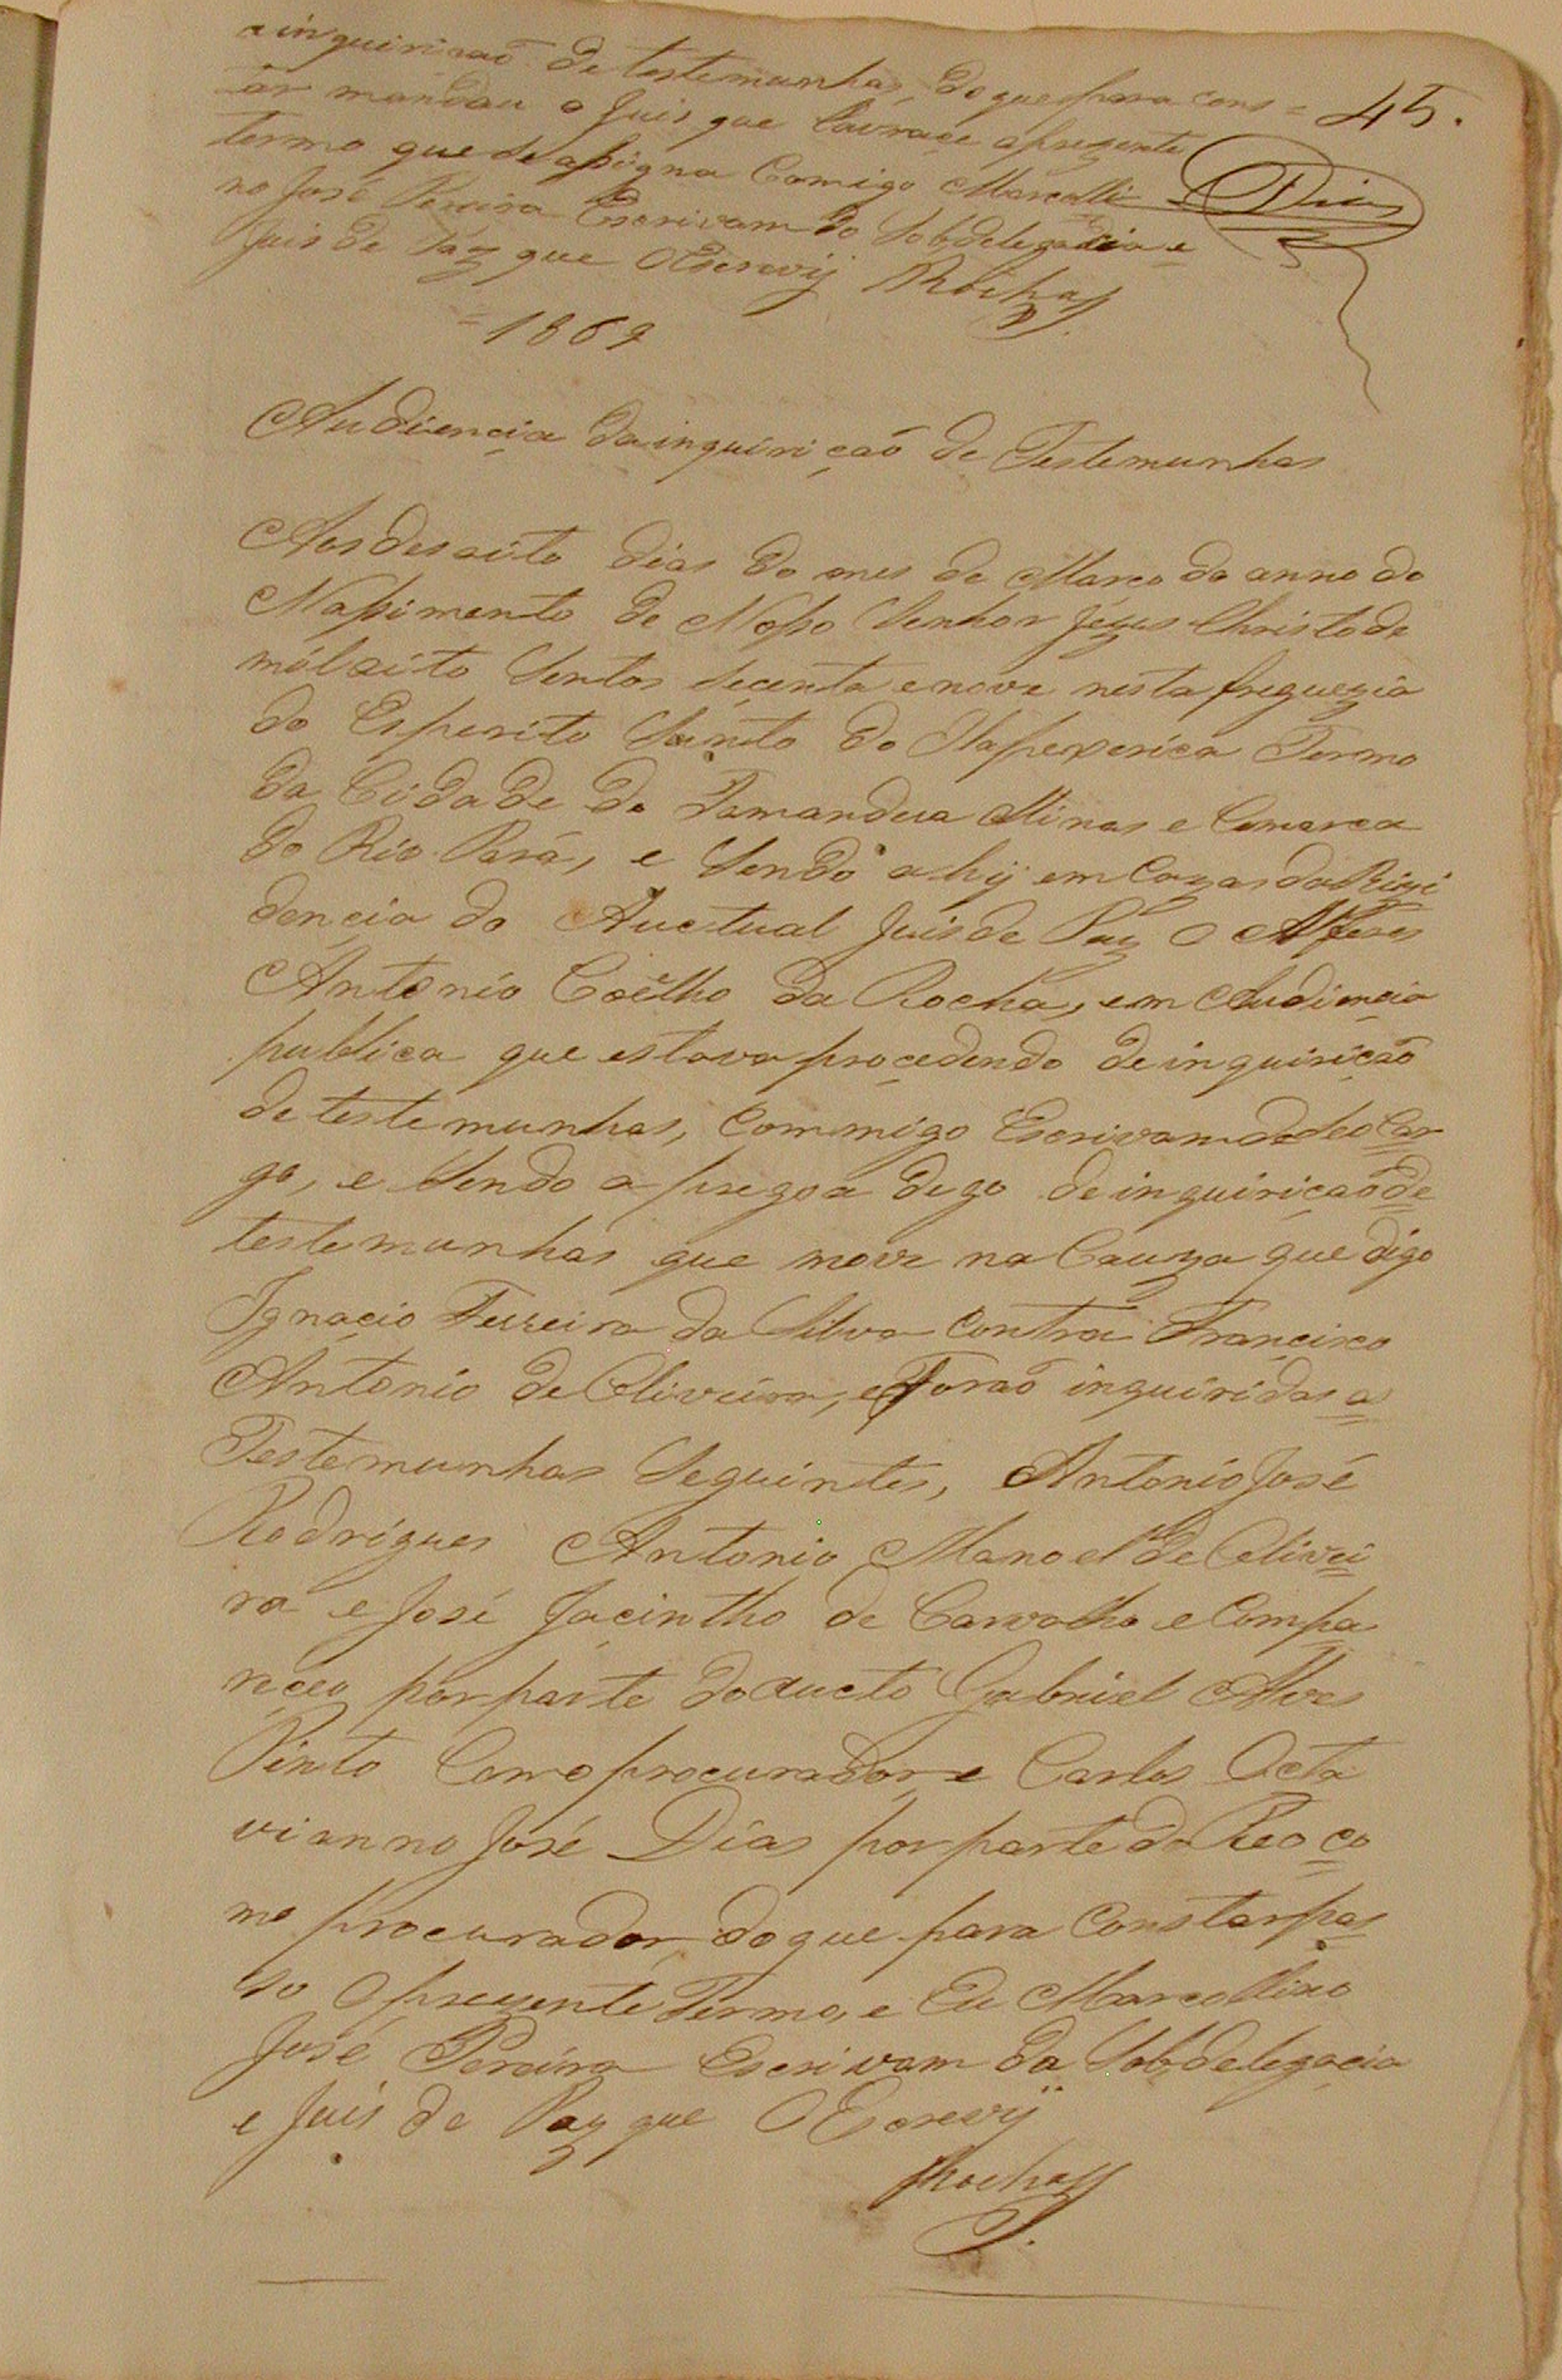 a inquirisaõ de testemunhas, do que para cons=
tar mandou o Juis que lavrace aprezente
termo que se assigna Comigo Marcolli
no José Pereira Escrivam do Sobdelegacia e
Juis de Páz que OEscrevij Rocha
45.
Dias
=1869
Audiencia da inquirição de Testemunhas
Aos desoito dias do mes de Março do anno do
Nassimento de Nosso Senhor Jezus Christo de
mil oito Sentos Secenta e nove nesta freguezia
do Esperito Santo do Itapexerica Termo
da Cidade de Tamandua Minas e Comarca
do Rio Pará, e Sendo ahij em Cazas da Rizi
dencia do Auctual Juis de Paz O Alferes
Antonio Coêlho da Rocha, em Audiencia
publica que estava procedendo de inquirição
de testemunhas, Commigo Escrivam de seo Car
go, e Sendo a pregoa dego de inquirição de
testemunhas que move na Cauza que digo
Ignacio Ferreira da Silva Contra Francisco
Antonio de Oliveira, e Foraõ inquiridas a
Testemunhas Seguintes, Antonio José
Rodrigues Antonio Manoel de Olivei
ra e José Jacintho de Carvalho e Compa
receo por parte do aucto Gabriel Alves
Pinto Como procurador e Carlos Octa
vianno José Dias por parte do Reo co
mo procurador, do que para Constar pas
so O prezente Termo, e Eu Marcollino
José Pereira Escrivam da Sobdelegacia
e Juis de Paz que OEscrevij
Rocha